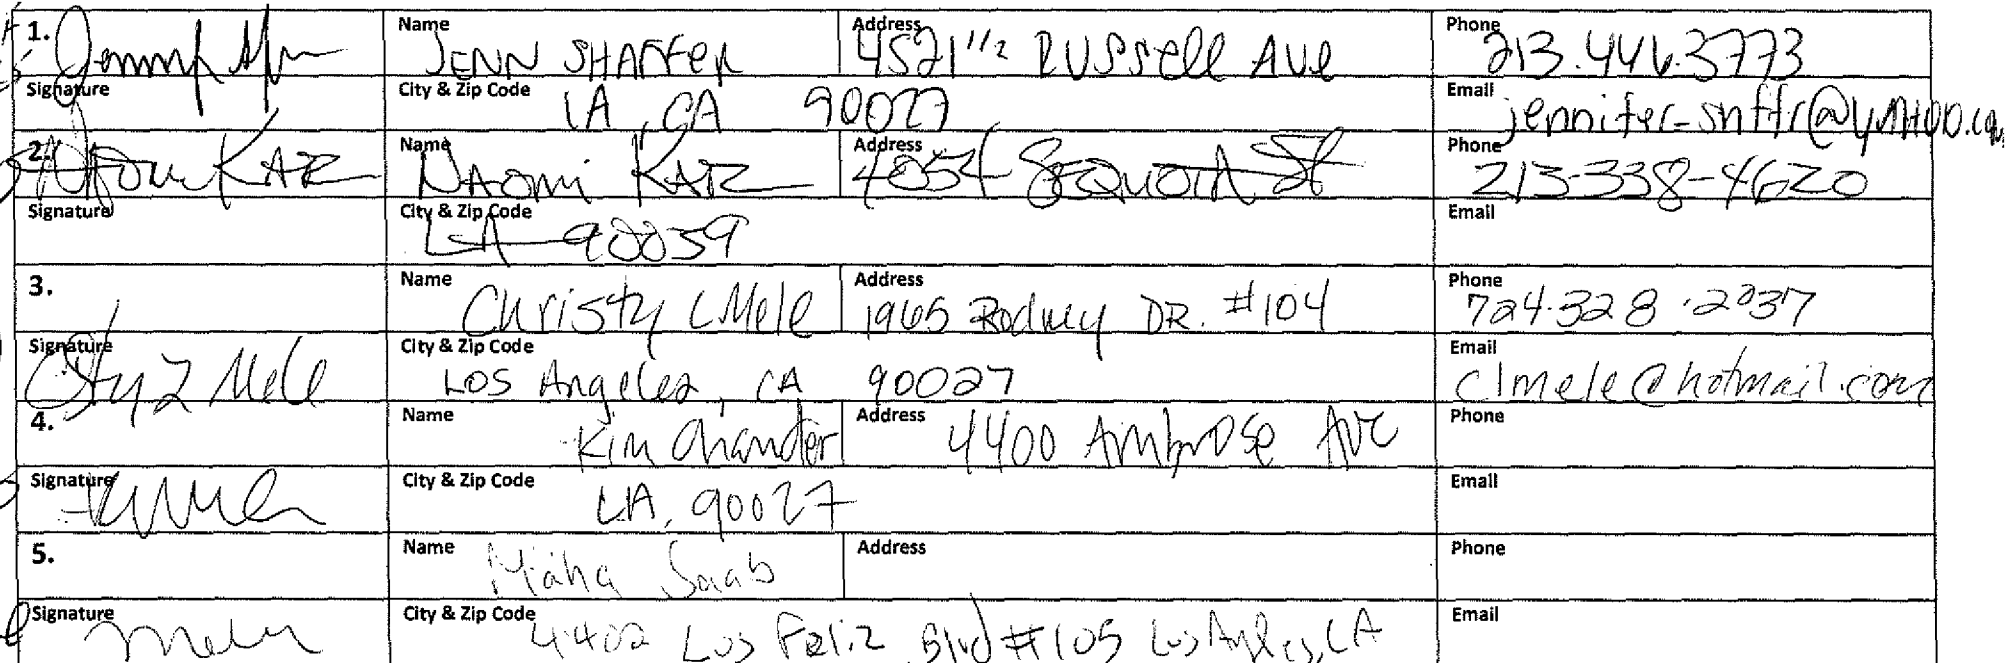 1. Name JENN SHAFFER Address 4521 1/2 RUSSell AVe Phone 213.446.3773
Signature City & Zip Code LA, CA 90027 Email jennifer_shffr@yahoo.com
2. Naomi KATZ Name NAOMI KATZ Address 4054 SEQUOIA St Phone 213-338-4620
Signature City & Zip Code LA 90039 Email
3. Name Christy L Mele Address 1965 Rodney DR. #104 Phone 724.328.2037
Signature Mele City & Zip Code Los Angeles, CA 90027 Email clmele@hotmail.com
4. Name Kim Chandler Address 4400 Ambrose Ave Phone
Signature City & Zip Code LA, 90027 Email
5. Name Maha Saab Address Phone
Signature City & Zip Code 4402 Los Feliz Blvd #105 Los Angeles, CA Email